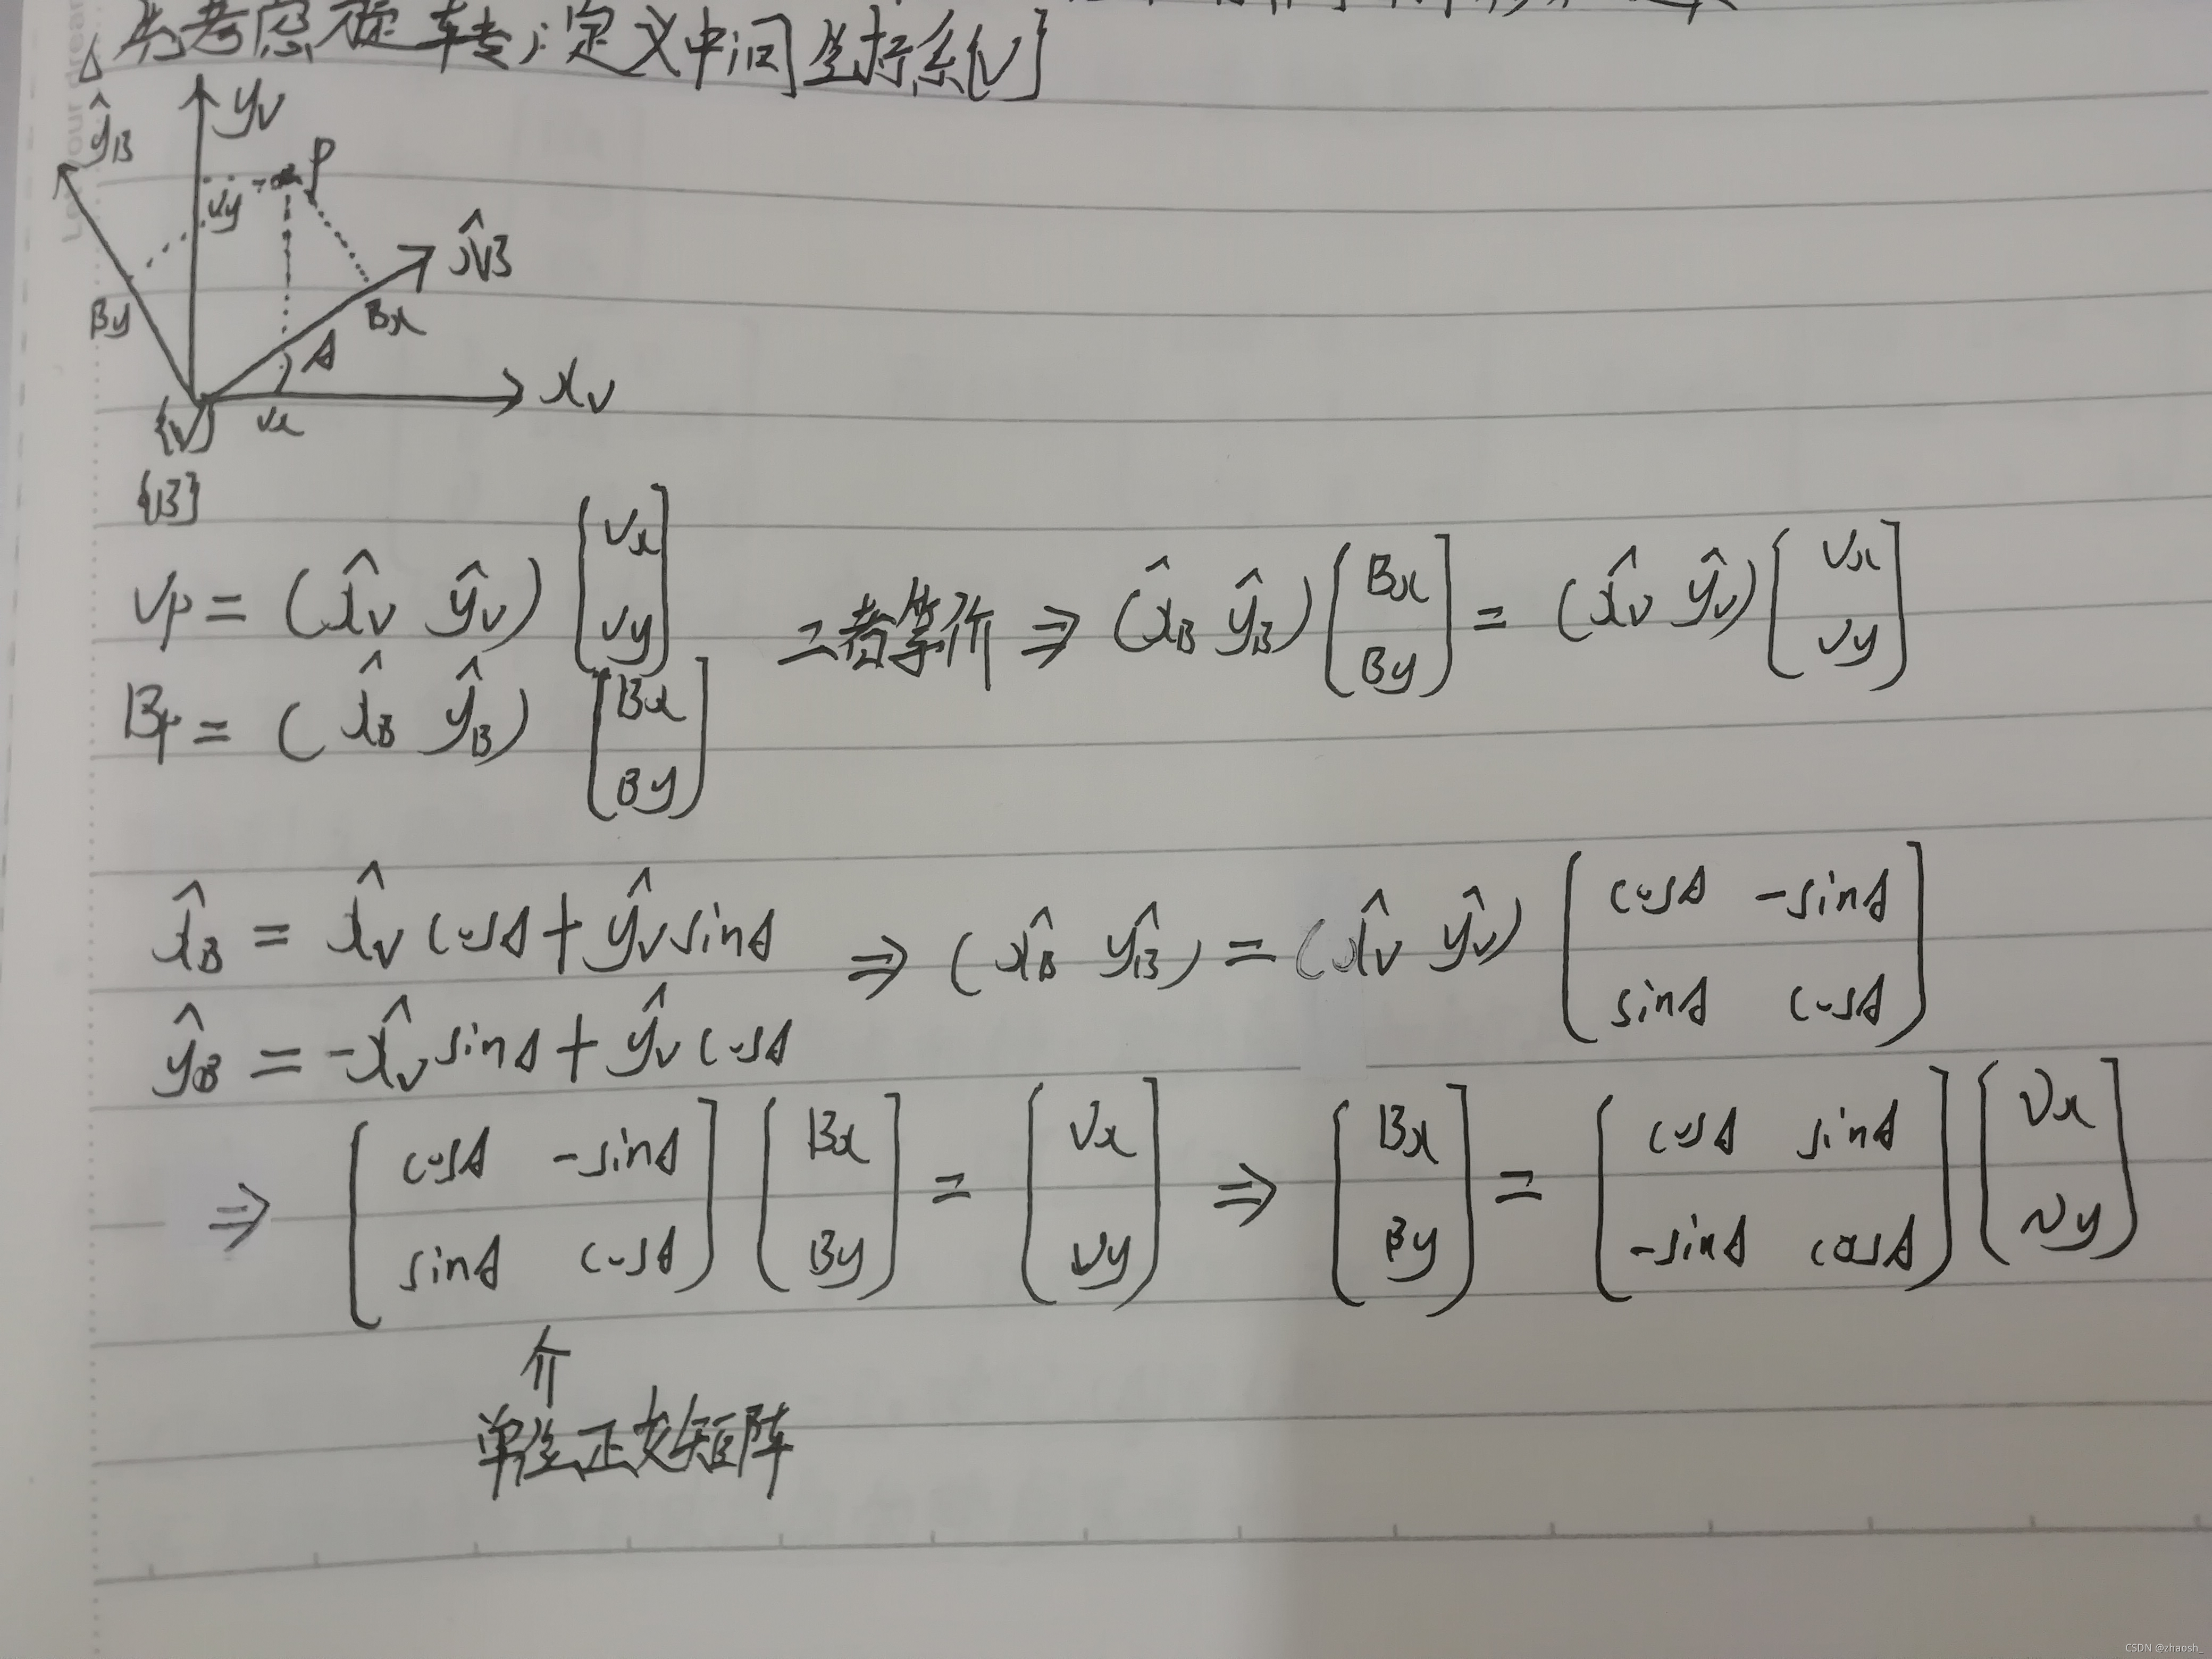 先考虑旋转，定义中间坐标系{V}
ŷB
yV
P
Vy
x̂B
By
Bx
A
xV
{V}
Vx
{B}
Vp = (x̂V ŷV) [Vx Vy]
Bp = (x̂B ŷB) [Bx By]
二者等价 ⇒ (x̂B ŷB) [Bx By] = (x̂V ŷV) [Vx Vy]
x̂B = x̂V cosA + ŷV sinA
ŷB = -x̂V sinA + ŷV cosA
⇒ (x̂B ŷB) = (x̂V ŷV) [cosA -sinA
sinA cosA]
⇒ [cosA -sinA
sinA cosA] [Bx By] = [Vx Vy] ⇒ [Bx By] = [cosA sinA
-sinA cosA] [Vx Vy]
⇑
单位正交矩阵
CSDN @zhaosh_